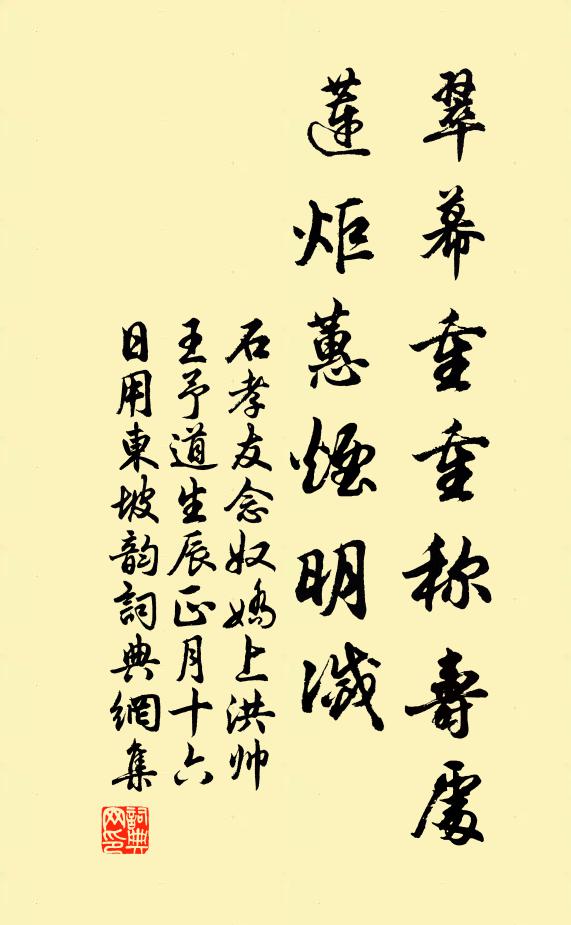 翠幕重重称壽處
蓮炬蕙煙明滅
石孝友念奴嬌上洪帅
王予道生辰正月十六
日用東坡韵詞典網集
詞典
网印